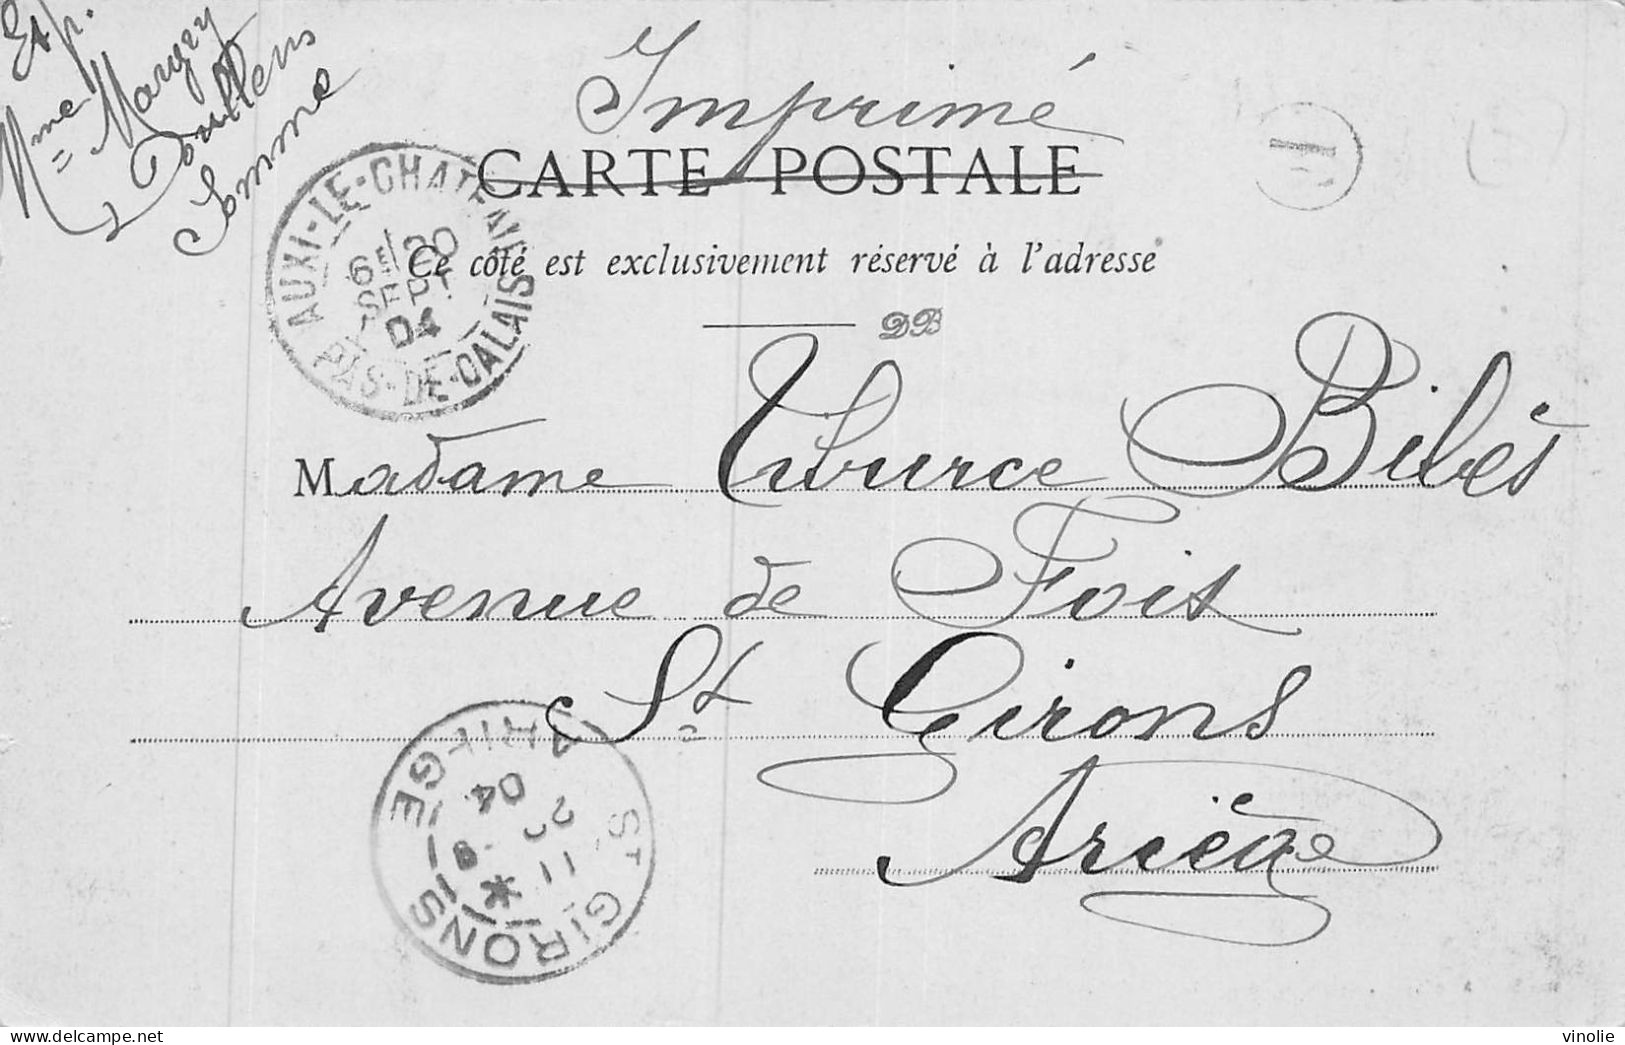 Exp.
Mme Maugry
Doullens
Somme
Imprimé
CARTE POSTALE
Ce côté est exclusivement réservé à l'adresse
DB
AUXI-LE-CHATEAU
6E/20
SEPT
04
PAS-DE-CALAIS
Madame Tiburce Bibès
Avenue de Foix
St Girons
Ariège
ST GIRONS
ARIEGE
11
04
vinolie